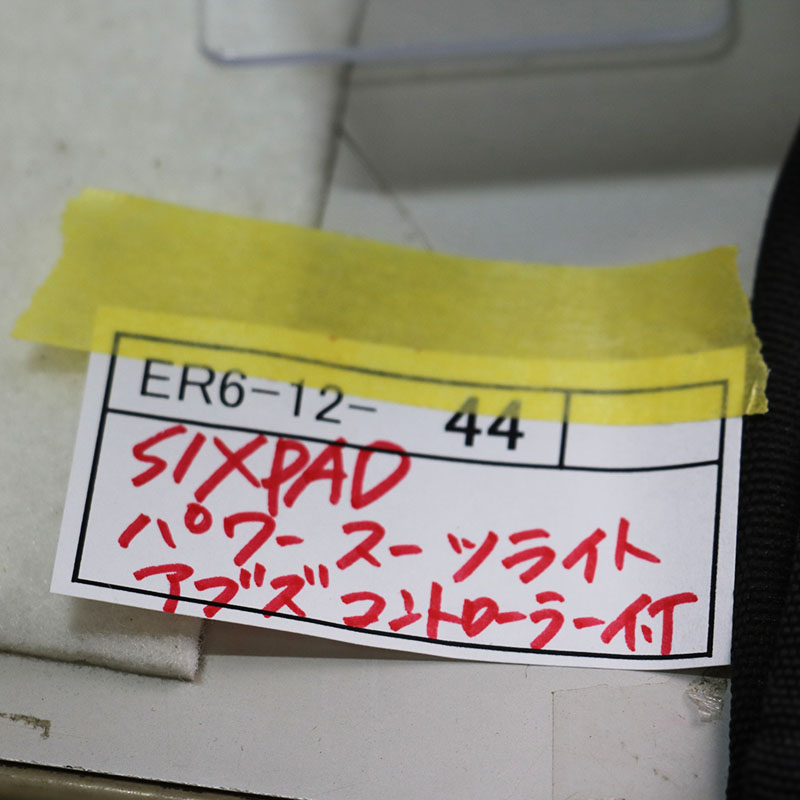 ER6-12- 44
SIXPAD
パワースーツライト
アブズ コントローラー付